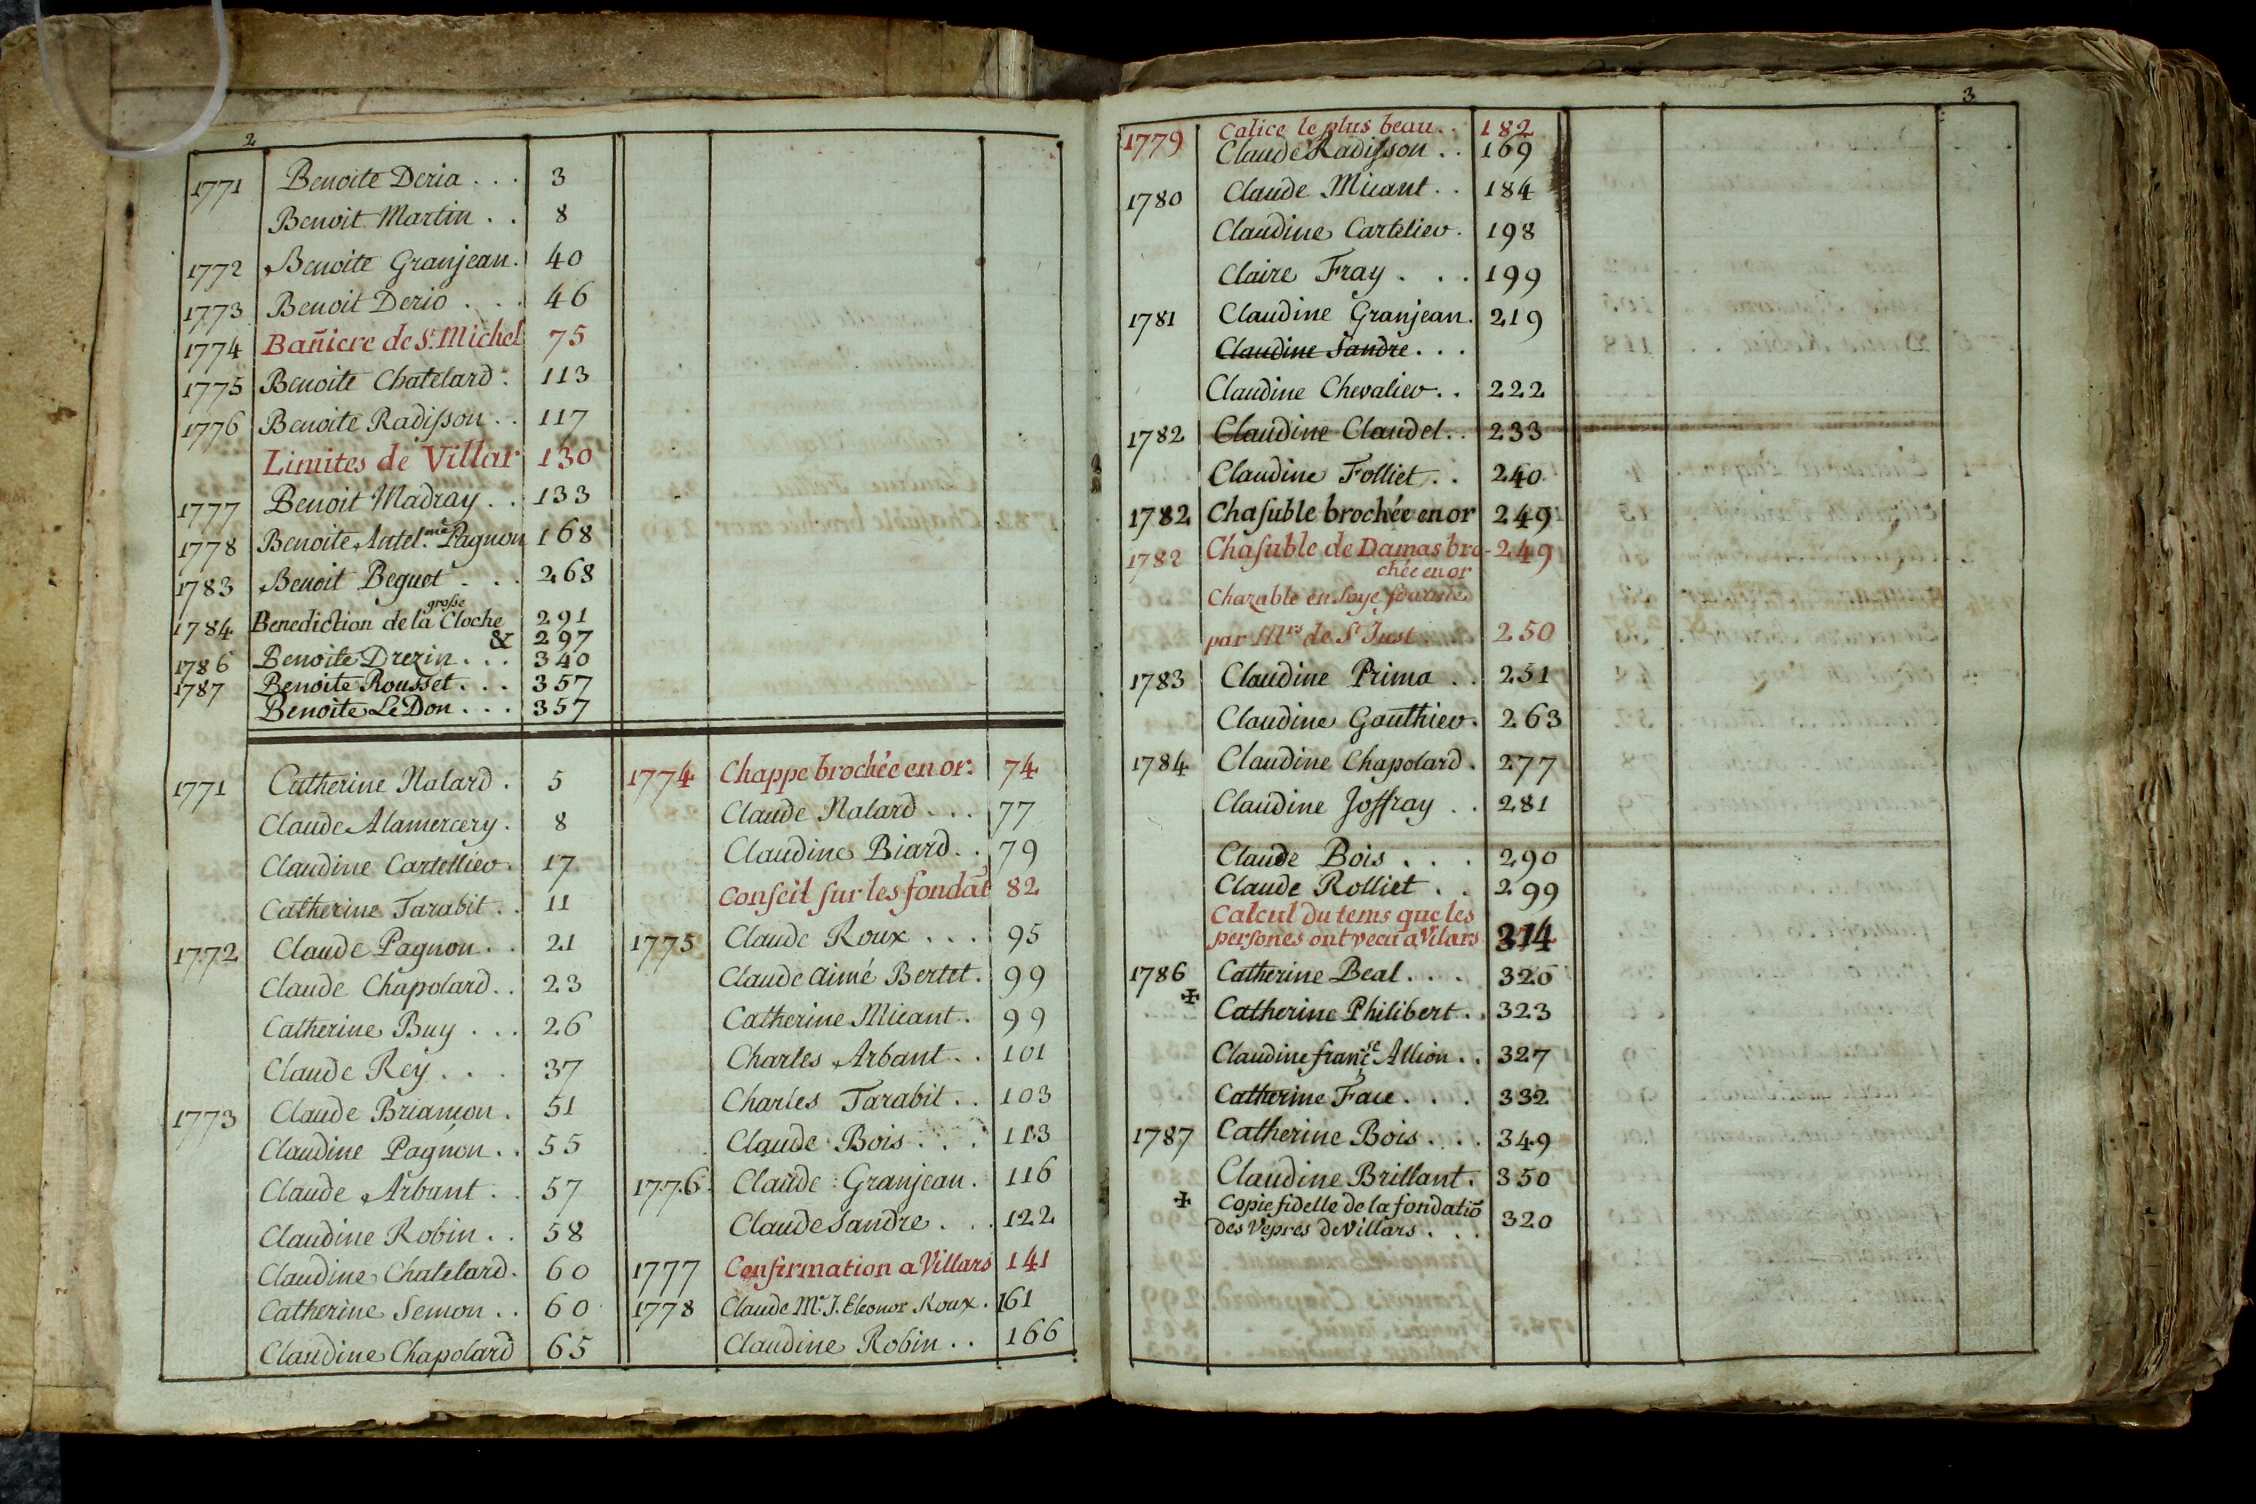 2
1771 Benoite Deria . . . 3
Benoit Martin . . 8
1772 Benoite Granjean. 40
1773 Benoit Derio . . . 46
1774 Bañiere de St. Michel 75
1775 Benoite Chatelard . 113
1776 Benoite Radisson . . 117
Limites de Villar 130
1777 Benoit Madray . . 133
1778 Benoite Antel.me Pagnon 168
1783 Benoit Beguet . . . 268
1784 Benediction de la grosse Cloche 291
& 297
1786 Benoite Drezin . . . 340
1787 Benoite Rousset . . . 357
Benoite Le Don . . . 357
1771 Catherine Nalard . 5
Claude Alamercery . 8
Claudine Cartellier . 17
Catherine Tarabit . . 11
1772 Claude Pagnon . . 21
Claude Chapolard . . 23
Catherine Buy . . . 26
Claude Rey . . . 37
1773 Claude Briancon . 51
Claudine Pagnon . . 55
Claude Arbant . . 57
Claudine Robin . . 58
Claudine Chatelard . 60
Catherine Semon . . 60
Claudine Chapolard 65
1774 Chappe brochée en or : 74
Claude Nalard . . . 77
Claudine Biard . . 79
Conseil sur les fondat 82
1775 Claude Roux . . . 95
Claude Aimé Bertet . 99
Catherine Micant . 99
Charles Arbant . . 101
Charles Tarabit . . 103
Claude Bois . . . 113
1776 Claude Granjean . 116
Claude Sandre . . . 122
1777 Confirmation a Villars 141
1778 Claude Me. J. Eleonor Roux . 161
Claudine Robin . . 166
3
1779 Calice le plus beau . . 182
Claude Radisson . . 169
1780 Claude Micant . . 184
Claudine Cartelier . 198
Claire Fray . . . 199
1781 Claudine Granjean . 219
Claudine Sandre . . .
Claudine Chevalier . . 222
1782 Claudine Claudel . . 233
Claudine Folliet . . 240
1782 Chasuble brochée en or 249
1782 Chasuble de Damas bro- 249
chée en or
Chazuble en Soye fournie
par Mrs de St Just 250
1783 Claudine Prima . . 251
Claudine Gauthier . 263
1784 Claudine Chapolard . 277
Claudine Joffray . . 281
Claude Bois . . . 290
Claude Rolliet . . 299
Calcul du tems que les
persones ont vecu a Vilars 314
1786 Catherine Beal . . . 320
✠ Catherine Philibert . . 323
Claudine francse Allion . . 327
Catherine Face . . . 332
1787 Catherine Bois . . . 349
Claudine Brillant . 350
✠ Copie fidelle de la fondatiõ
des Vepres de Villars . . . 320